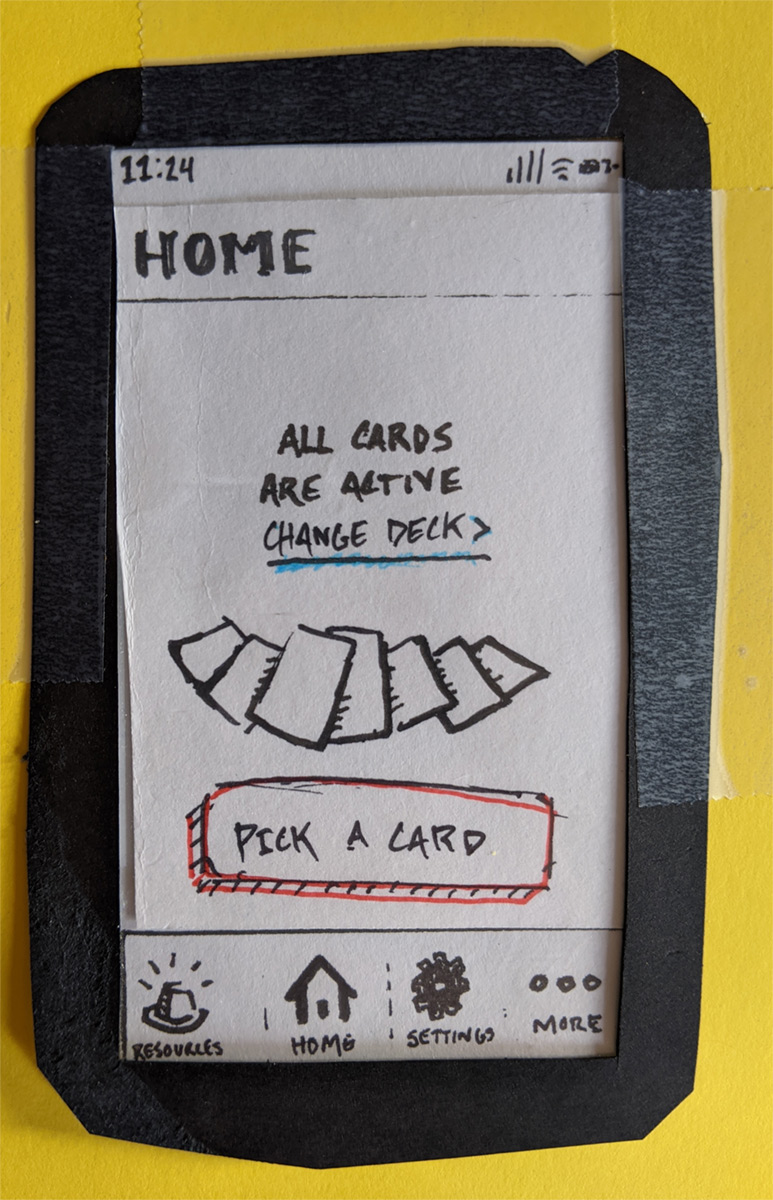 11:24
HOME
ALL CARDS
ARE ACTIVE
CHANGE DECK >
PICK A CARD
RESOURCES
HOME
SETTINGS
MORE